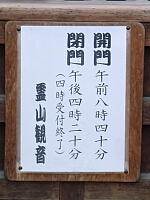 開門 午前八時四十分
閉門 午後四時二十分
(四時受付終了)
霊山観音